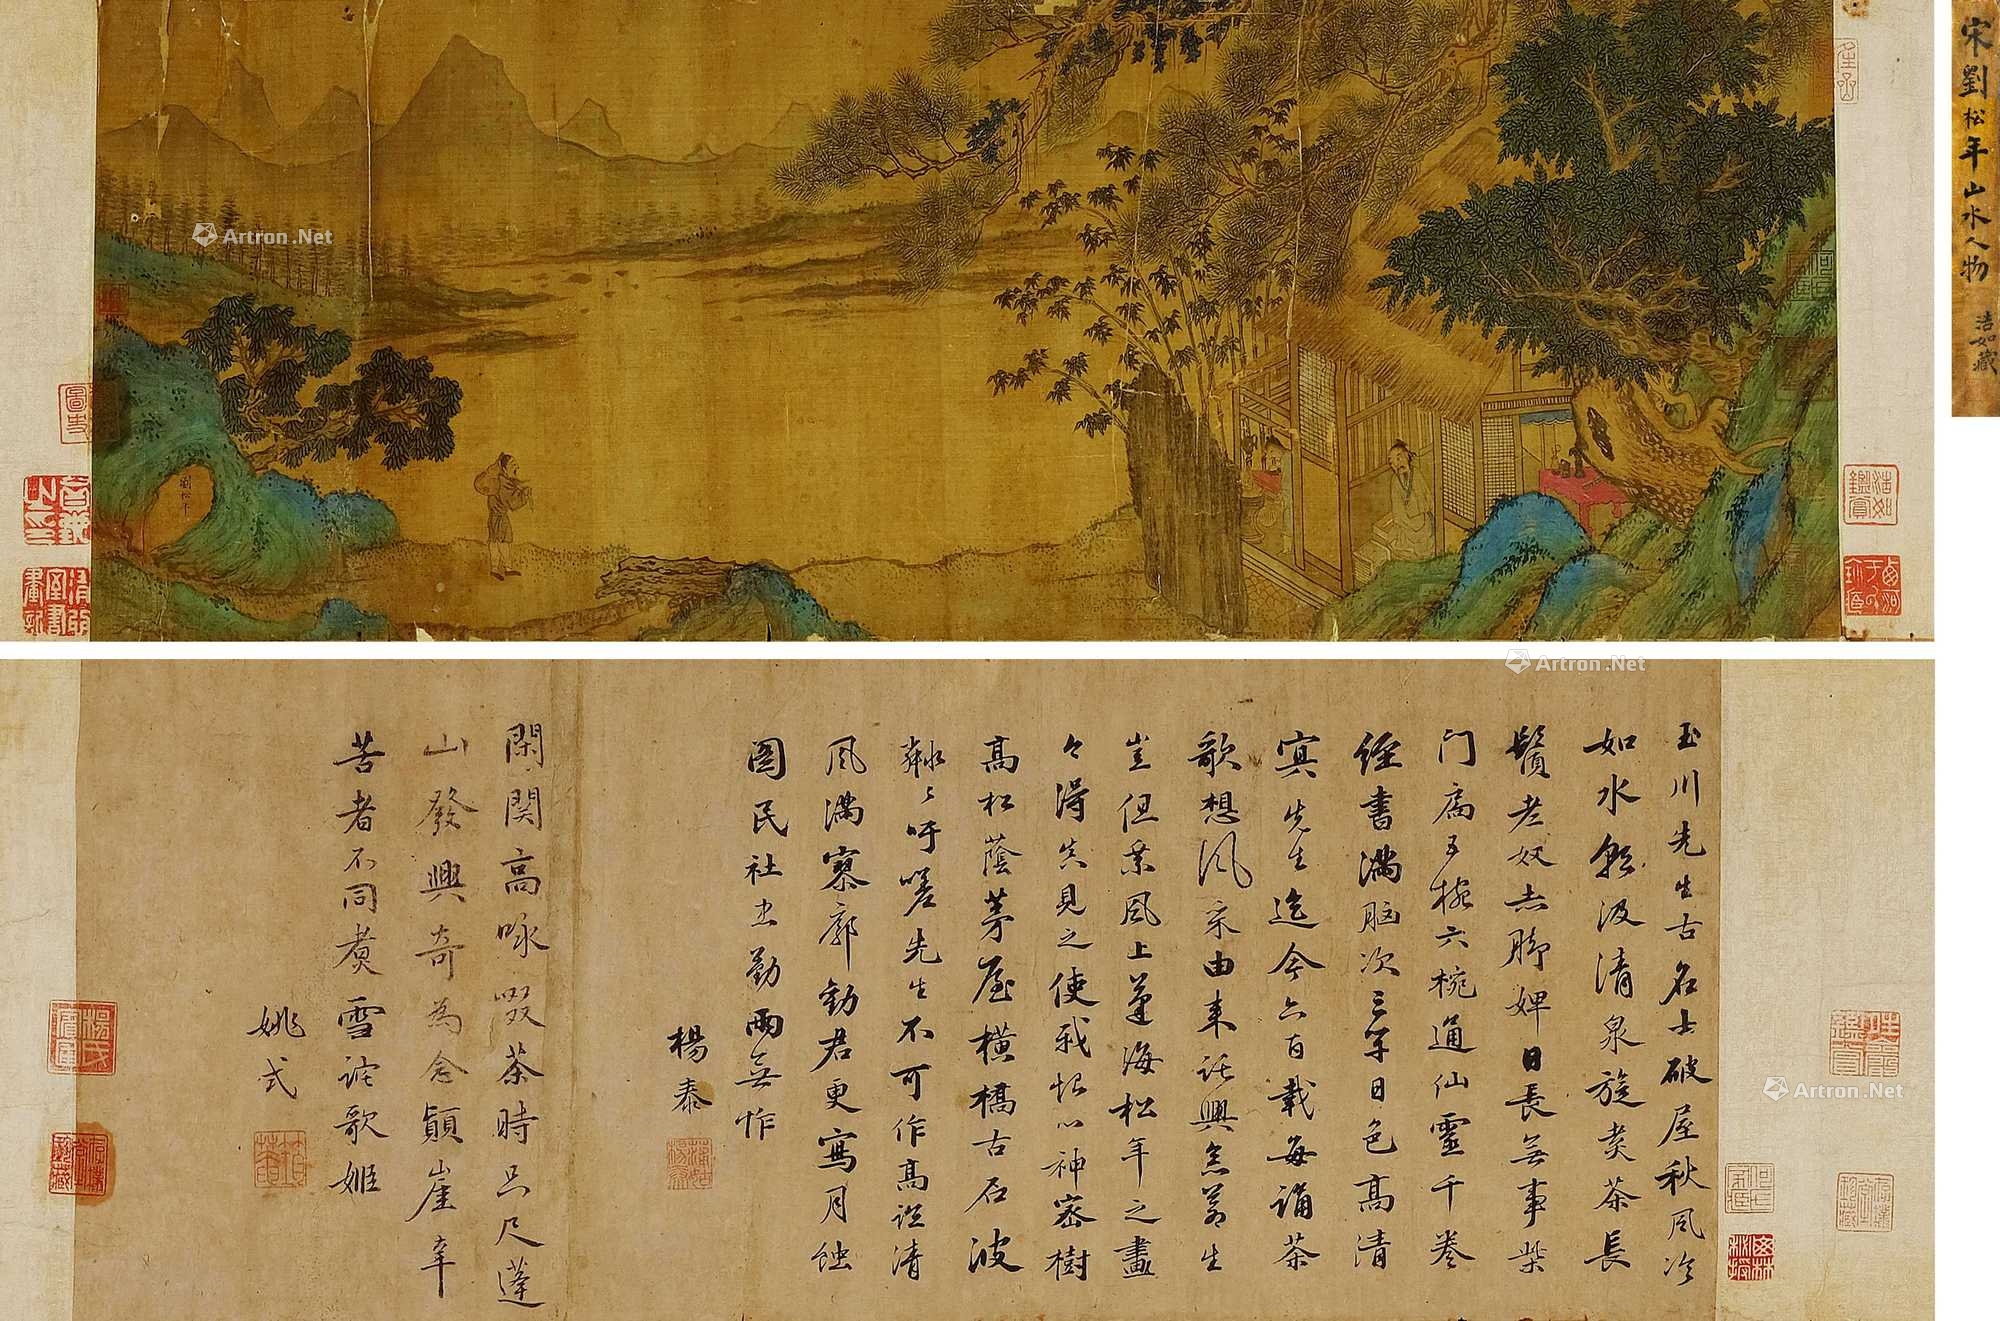 宋劉松年山水人物
浩如藏
劉松年
Artron.Net
Artron.Net
Artron.Net
浩如鑑賞
玉川先生古名士破屋秋風冷
如水躬汲清泉旋煮茶長
鬚老奴赤脚婢日長無事柴
门扃五椀六椀通仙靈千卷
經書滿腦次三竿日色高清
寘先生迄今六百載每誦茶
歌想風宗由来託興
豈但乘風上蓬海松年之畫
得真見之使我心神密樹
高松蔭茅屋橫橋古石波
粼〻吁嗟先生不可作高詠清
風滿寥廓勸君更寫月蝕
圖民社忠勤兩無怍
楊泰
閑関高咏啜茶時只尺蓬
山發興奇為念顛崖辛
苦者不同煮雪詫歌姬
姚式